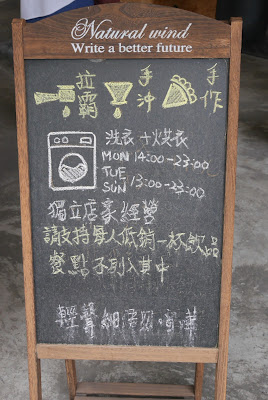 Natural wind
Write a better future
拉霸 手沖 手作
洗衣+烘衣
MON 14:00-23:00
TUE
SUN 13:00-23:00
獨立店家經營
請支持每人低銷一杯飲品
餐點不列入其中
輕聲細語 喧嘩